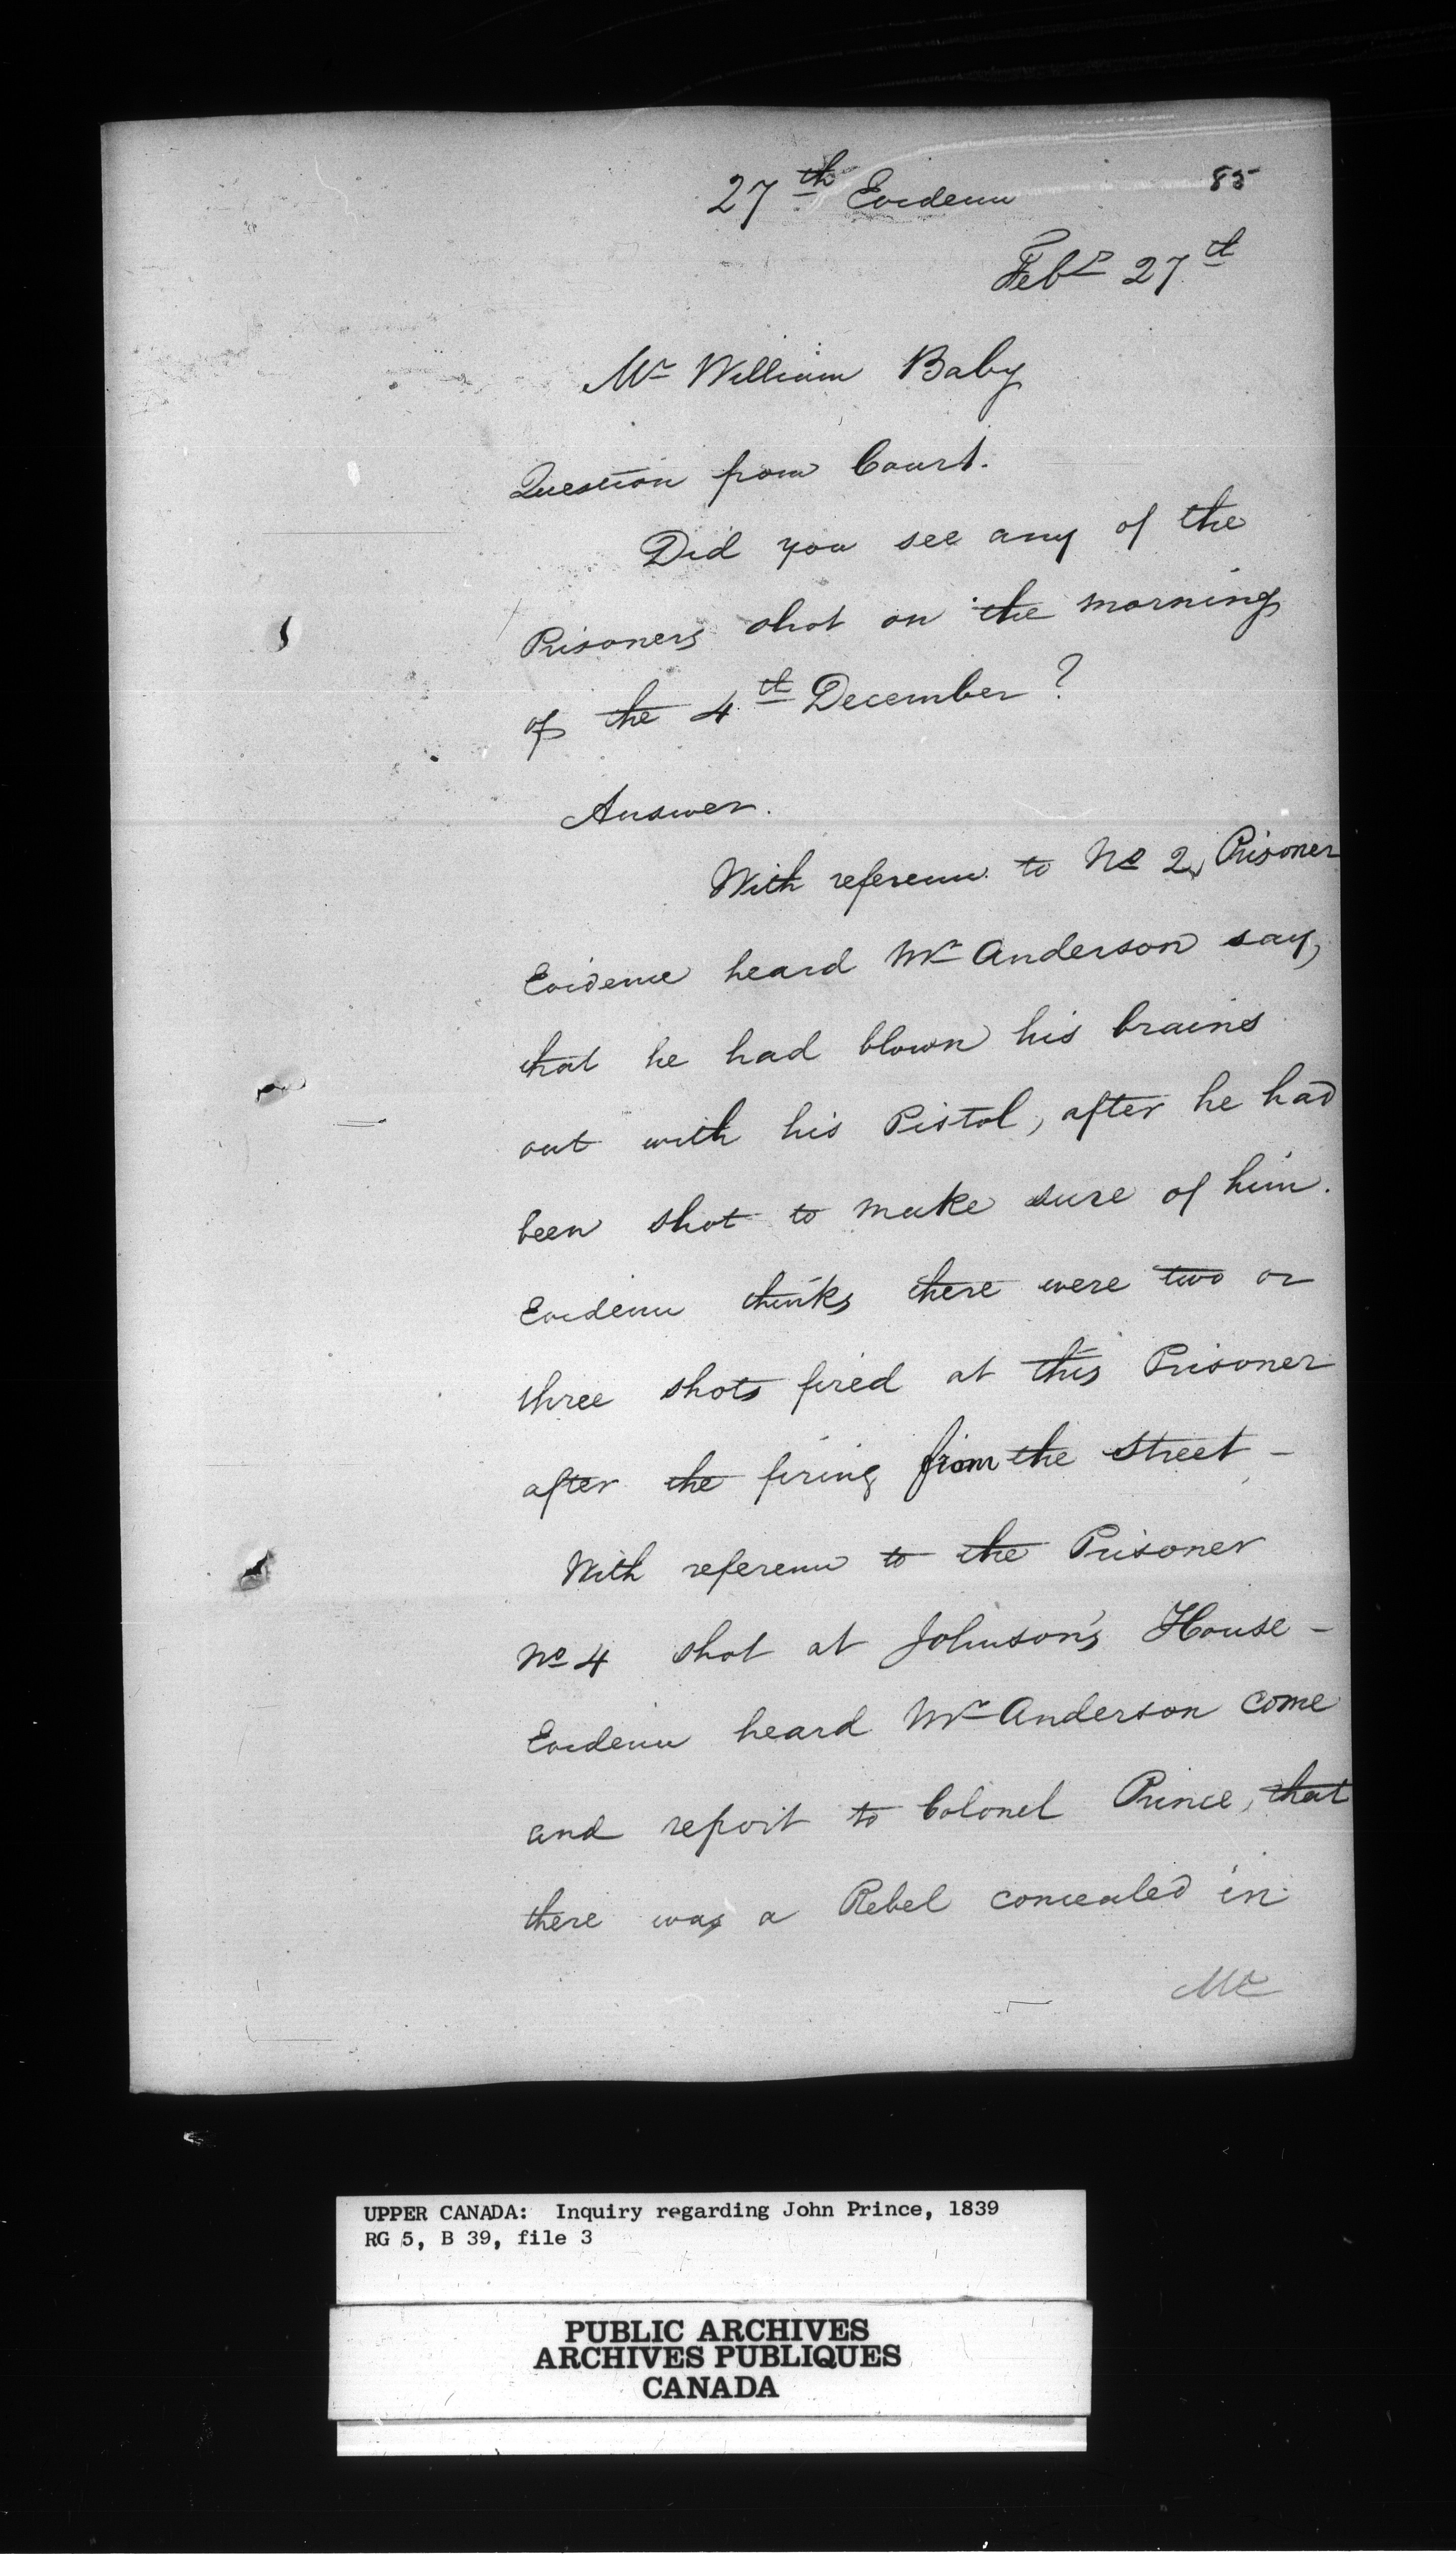 85
27th Evidence
Feby 27th
Mr William Baby
Question from Court.
Did you see any of the
Prisoners shot on the morning
of the 4th December?
Answer.
With reference to No 2, Prisoner
Evidence heard Mr Anderson say,
that he had blown his brains
out with his Pistol, after he had
been shot to make sure of him.
Evidence thinks there were two or
three shots fired at this Prisoner
after the firing from the street –
With reference to the Prisoner
No 4 shot at Johnson's House –
Evidence heard Mr Anderson come
and report to Colonel Prince, that
there was a Rebel concealed in
Mr
UPPER CANADA: Inquiry regarding John Prince, 1839
RG 5, B 39, file 3
PUBLIC ARCHIVES
ARCHIVES PUBLIQUES
CANADA